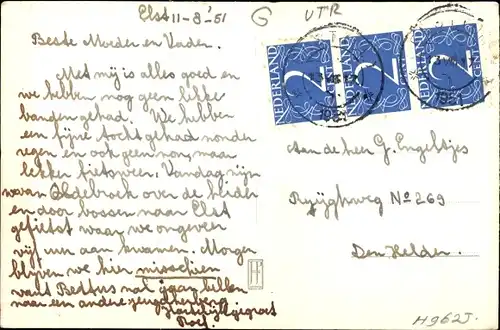 Elst 11-8-'51
Beste Moeder en Vader.
Met mij is alles goed en
we hebben nog geen lekke
banden gehad. We hebben
een fijne tocht gehad zonder
regen en ook geen zon, maar
lekker fietsweer. Vandaag zijn
we van Oldebroek over de heide
en door bossen naar Elst
gefietst waar we ongeveer
vijf uur aan kwamen. Morgen
blijven we hier misschien
want Bettus zal gaan bellen
naar een andere jeugdherberg
Hartelijk gegroet
Roef.
G UTR
NEDERLAND 2 CENT
NEDERLAND 2 CENT
NEDERLAND 2 CENT
Aan de heer G. Engeltjes
No 269
Den Helder.
H962J.